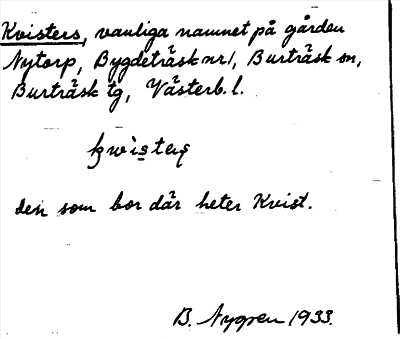 Kvisters, vanliga namnet på gården
Nytorp, Bygdeträsk nr 1, Burträsk sn,
Burträsk tg, Västerb. l.
kwìsteṣ
den som bor där heter Kvist.
B. Nygren 1933.